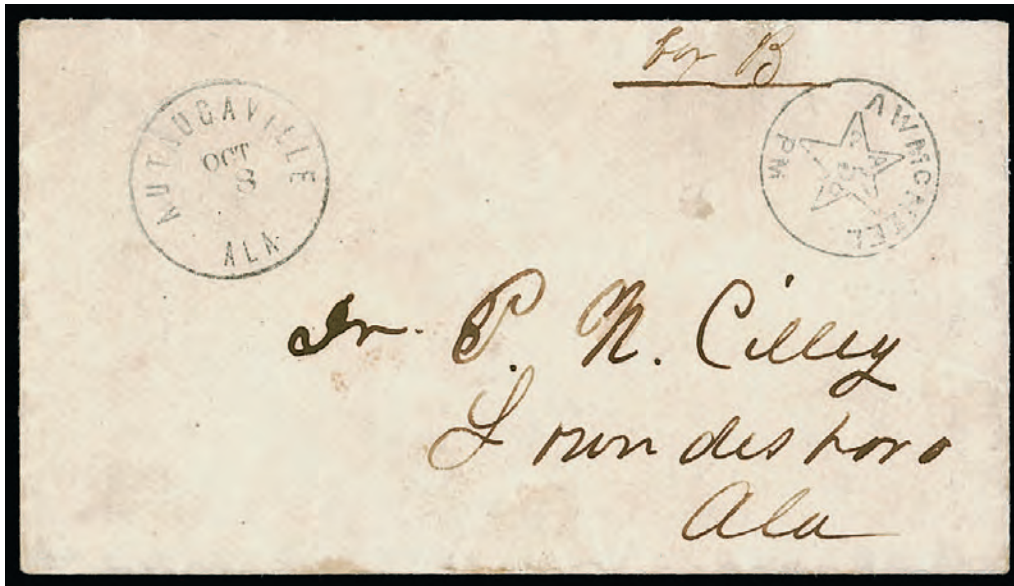 Box B
AUTAUGAVILLE
OCT
8
ALA
A W MCNEEL
PM
PAID
5
Dr. P. N. Cilley
Lowndesboro
Ala